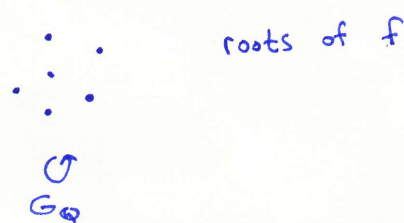 roots of f
G_Q